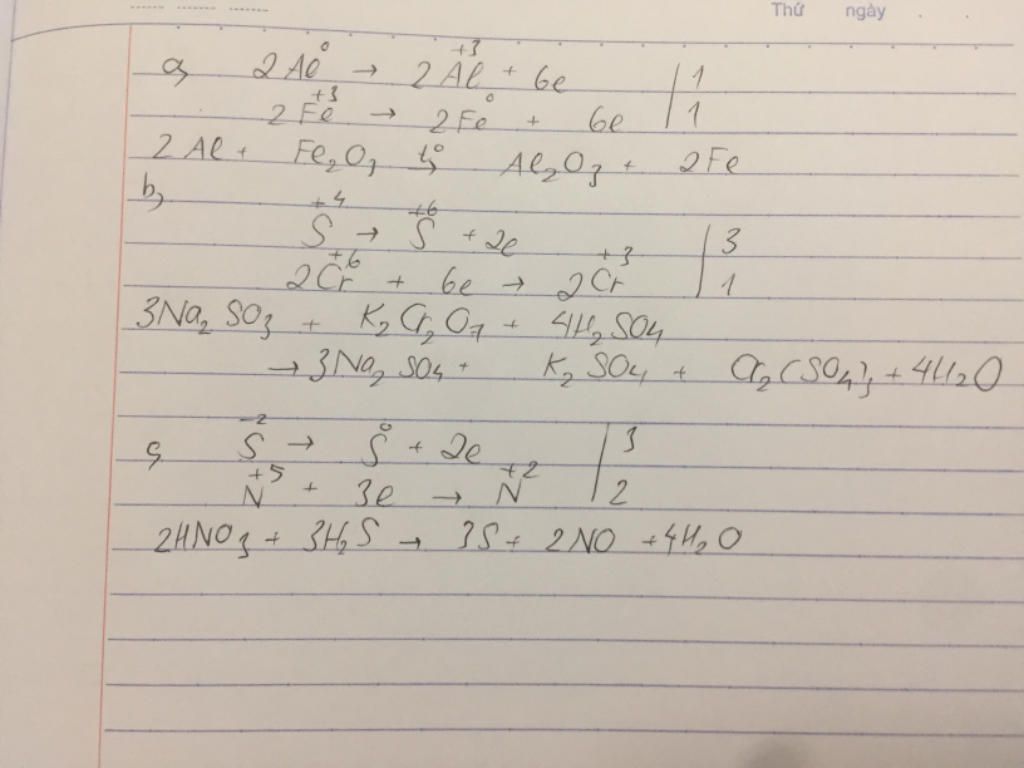 Thứ ngày . .
a, 2Al⁰ → 2Al⁺³ + 6e | 1
2Fe⁺³ → 2Fe⁰ + 6e | 1
2Al + Fe₂O₃ t⁰→ Al₂O₃ + 2Fe
b,
S⁺⁴ → S⁺⁶ + 2e | 3
2Cr⁺⁶ + 6e → 2Cr⁺³ | 1
3Na₂SO₃ + K₂Cr₂O₇ + 4H₂SO₄
→ 3Na₂SO₄ + K₂SO₄ + Cr₂(SO₄)₃ + 4H₂O
c, S⁻² → S⁰ + 2e | 3
N⁺⁵ + 3e → N⁺² | 2
2HNO₃ + 3H₂S → 3S + 2NO + 4H₂O